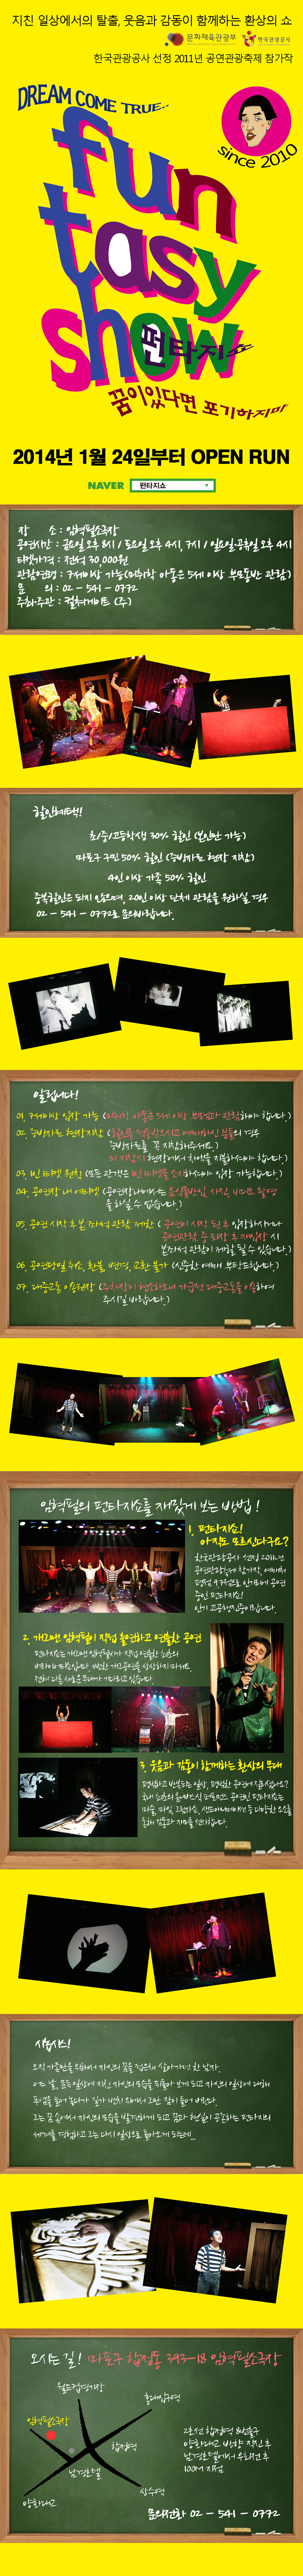 지친 일상에서의 탈출, 웃음과 감동이 함께하는 환상의 쇼
문화체육관광부
한국관광공사
한국관광공사 선정 2011년 공연관광축제 참가작
DREAM COME TRUE..
since 2010
fun
tasy
show
펀타지쇼
꿈이있다면 포기하지마
2014년 1월 24일부터 OPEN RUN
NAVER 펀타지쇼
장 소 : 임혁필소극장
공연시간 : 금요일 오후 8시 / 토요일 오후 4시, 7시 / 일요일·공휴일 오후 4시
티켓가격 : 전석 30,000원
관람연령 : 7세이상 가능(미취학 아동은 5세 이상 부모동반 관람)
문 의 : 02 - 541 - 0772
주최/주관 : 컬쳐게이트 (주)
할인혜택!
초/중/고등학생 30% 할인 (본인만 가능)
마포구 구민 50% 할인 (증빙자료 현장 지참)
4인이상 가족 50% 할인
중복할인은 되지 않으며, 20인 이상 단체 관람을 원하실 경우
02 - 541 - 0772로 문의바랍니다.
알립니다!
01. 7세이상 입장 가능 (미취학 아동은 5세 이상 부모님과 관람하셔야 합니다.)
02. 증빙자료 현장지참 (할인을 적용받으시고 예매하신 분들의 경우
증빙자료를 꼭 지참해주세요.)
미 지참시 현장에서 차액을 지불하셔야 합니다.)
03. 1인 1티켓 원칙 (모든 관객은 1인 1티켓을 소지하셔야 입장 가능합니다.)
04. 공연장 내 에티켓 (공연장내에서는 음식물반입, 사진, 비디오 촬영
을 하실 수 없습니다.)
05. 공연 시작 후 본 좌석 관람 제한 ( 공연이 시작 된 후 입장하시거나
공연관람 중 퇴장 후 재입장 시
본좌석 관람이 제한 될 수 있습니다.)
06. 공연당일 취소, 환불, 변경, 교환 불가 (신중한 예매 부탁드립니다.)
07. 대중교통 이용권장 (주차장이 협소하오니 가급적 대중교통을 이용하여
주시길 바랍니다.)
임혁필의 펀타지쇼를 재밌게 보는 방법 !
1. 펀타지쇼!
아직도 모르신다구요?
2. 개그맨 임혁필이 직접 출연하고 연출한 공연
3. 웃음과 감동이 함께하는 환상의 무대
시놉시스!
오직 가족만을 위해서 자신의 꿈을 접은채 살아가던 한 남자.
오시는 길! 마포구 합정동 393-18 임혁필소극장
월드컵경기장
홍대입구역
임혁필소극장
합정역
남경호텔
양화대교
상수역
2호선 합정역 8번출구
양화대교 방향 직진 후
남경호텔에서 우회전 후
100M 지점
문의전화 02 - 541 - 0772